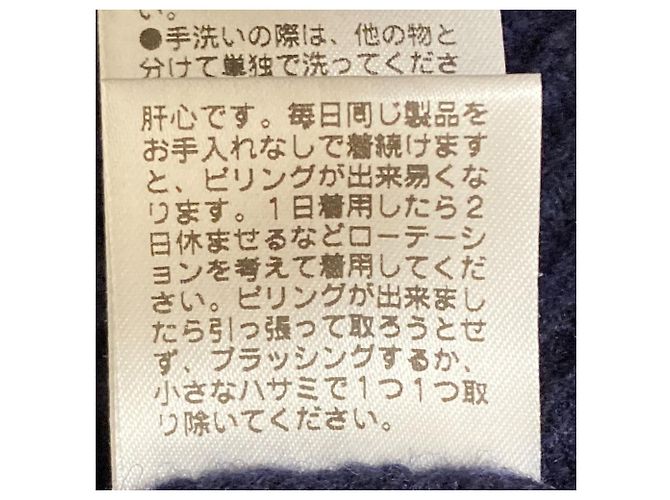 い。
●手洗いの際は、他の物と
分けて単独で洗ってくださ
肝心です。毎日同じ製品を
お手入れなしで着続けます
と、ピリングが出来易くな
ります。1日着用したら2
日休ませるなどローテーシ
ョンを考えて着用してくだ
さい。ピリングが出来まし
たら引っ張って取ろうとせ
ず、ブラッシングするか、
小さなハサミで1つ1つ取
り除いてください。